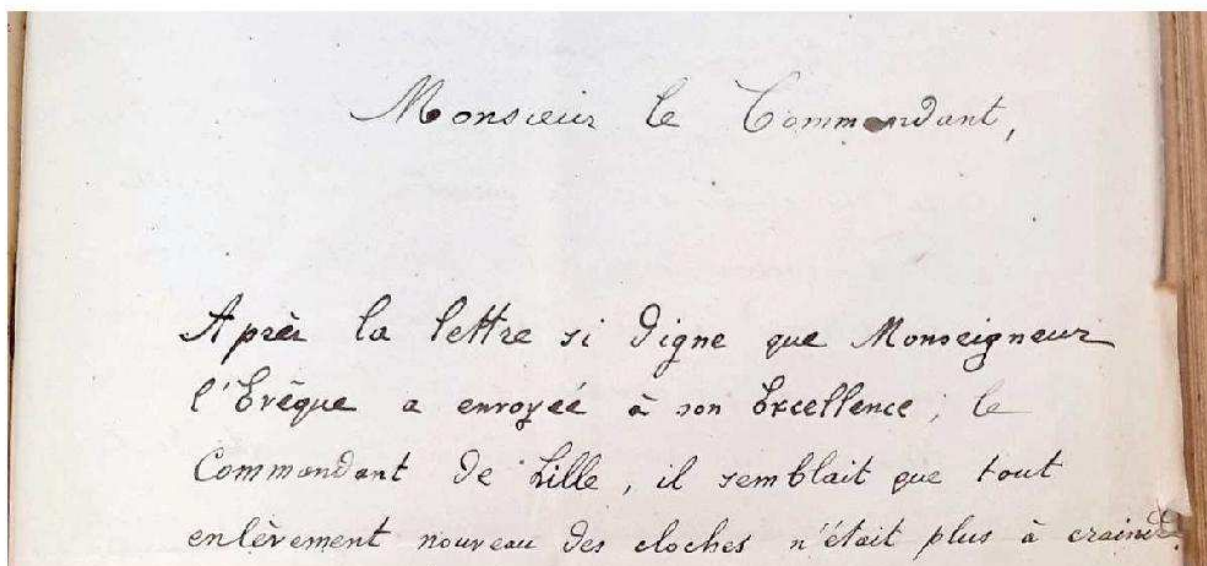 Monsieur le Commandant,
Après la lettre si digne que Monseigneur
l'Evêque a envoyée à son Excellence, le
Commandant de Lille, il semblait que tout
enlèvement nouveau des cloches n'était plus à craindre